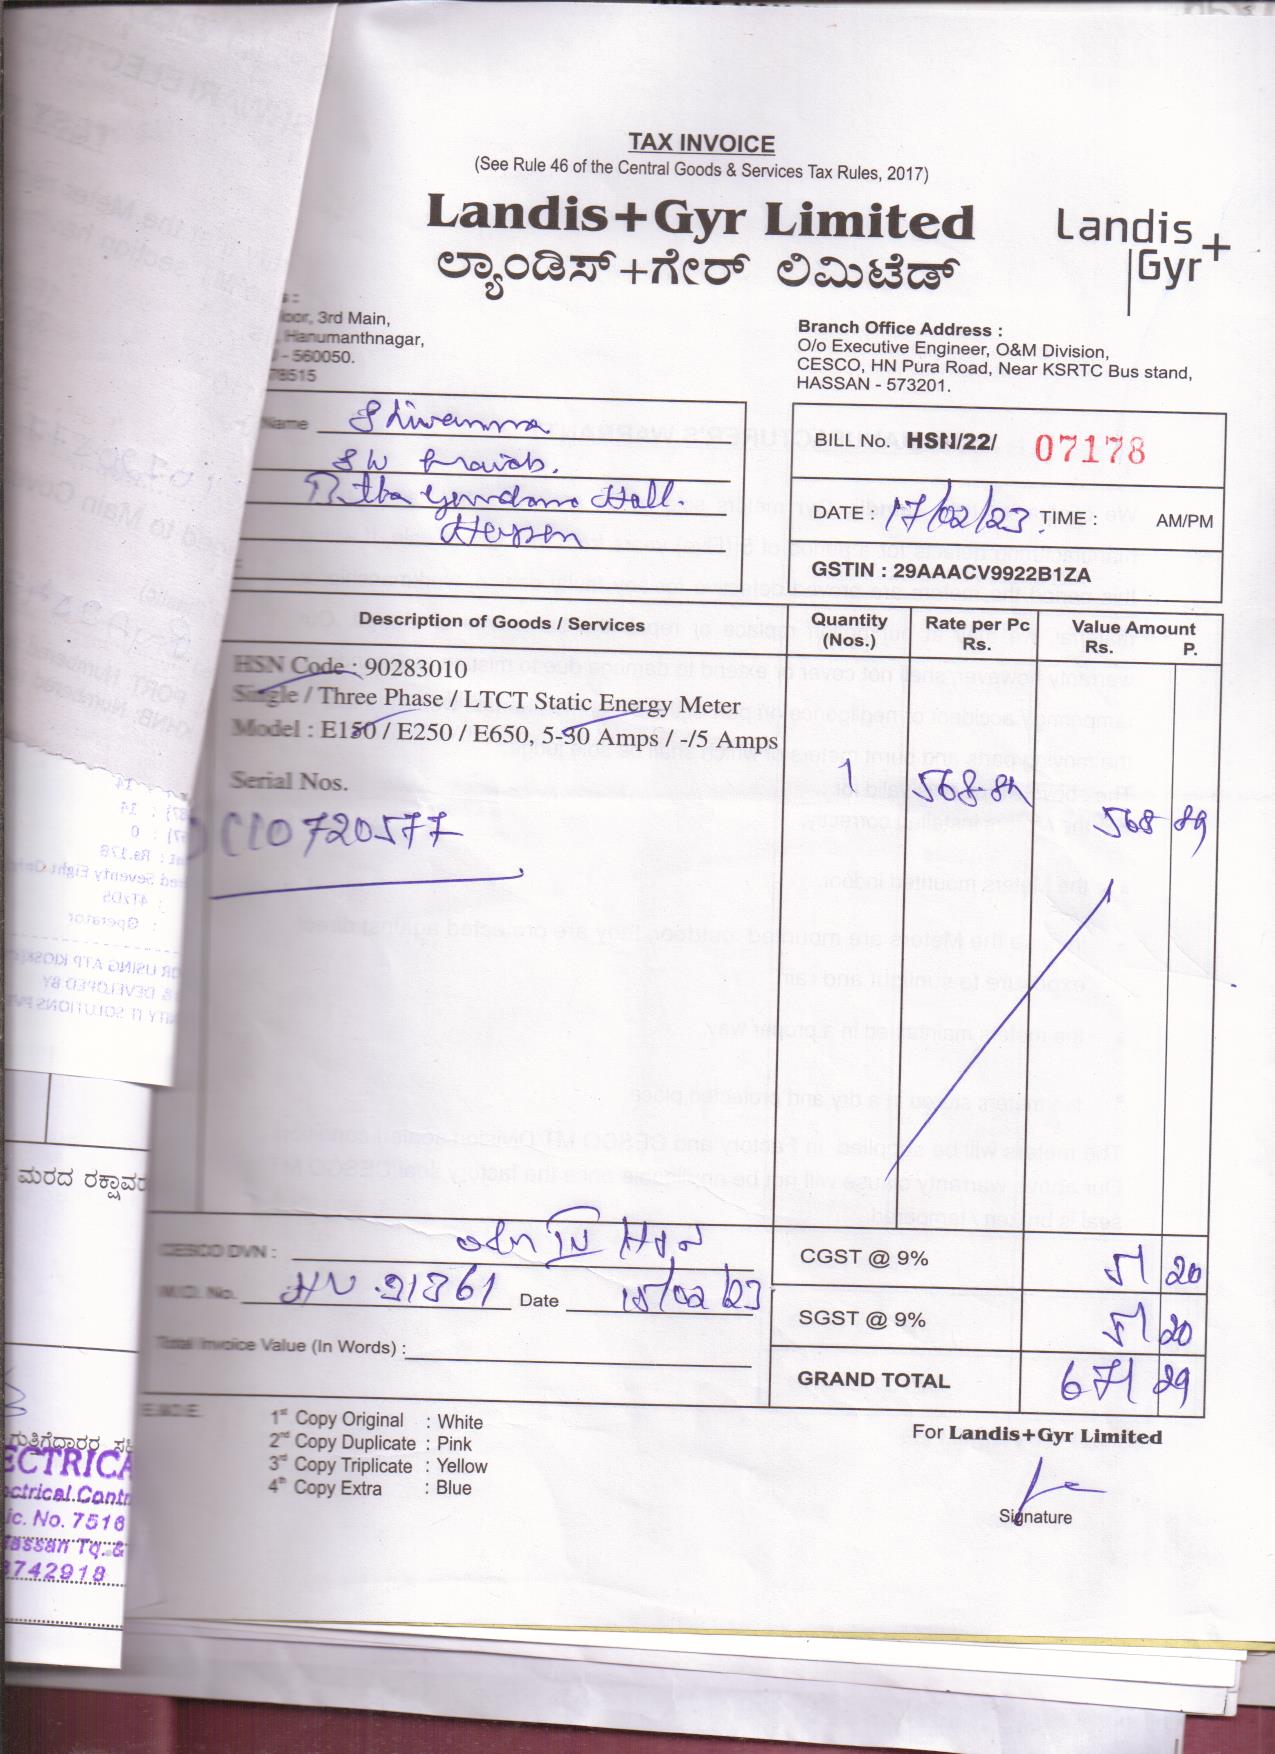 TAX INVOICE
(See Rule 46 of the Central Goods & Services Tax Rules, 2017)
Landis+Gyr Limited
ಲ್ಯಾಂಡಿಸ್+ಗೇರ್ ಲಿಮಿಟೆಡ್
Landis
Gyr+
3rd Main,
Hanumanthnagar,
- 560050.
78515
Branch Office Address :
O/o Executive Engineer, O&M Division,
CESCO, HN Pura Road, Near KSRTC Bus stand,
HASSAN - 573201.
Name Shivanna
Hall.
Hassan
BILL No. HSN/22/ 07178
DATE : 17/02/23 TIME : AM/PM
GSTIN : 29AAACV9922B1ZA
Description of Goods / Services Quantity (Nos.) Rate per Pc Rs. Value Amount Rs. P.
HSN Code : 90283010
Single / Three Phase / LTCT Static Energy Meter
Model : E150 / E250 / E650, 5-30 Amps / -/5 Amps
Serial Nos.
1 568.89 568 89
C10720577
CESCO DVN : HSN
CGST @ 9% 51 20
W.O. No. HN 21861 Date 15/02/23
SGST @ 9% 51 20
Total Invoice Value (In Words) :
GRAND TOTAL 671 29
E.&O.E.
1st Copy Original : White
2nd Copy Duplicate : Pink
3rd Copy Triplicate : Yellow
4th Copy Extra : Blue
For Landis+Gyr Limited
Signature
ಮರದ
ECTRICA
ectrical Contr
ic. No. 7516
assan Tq. &
8742918